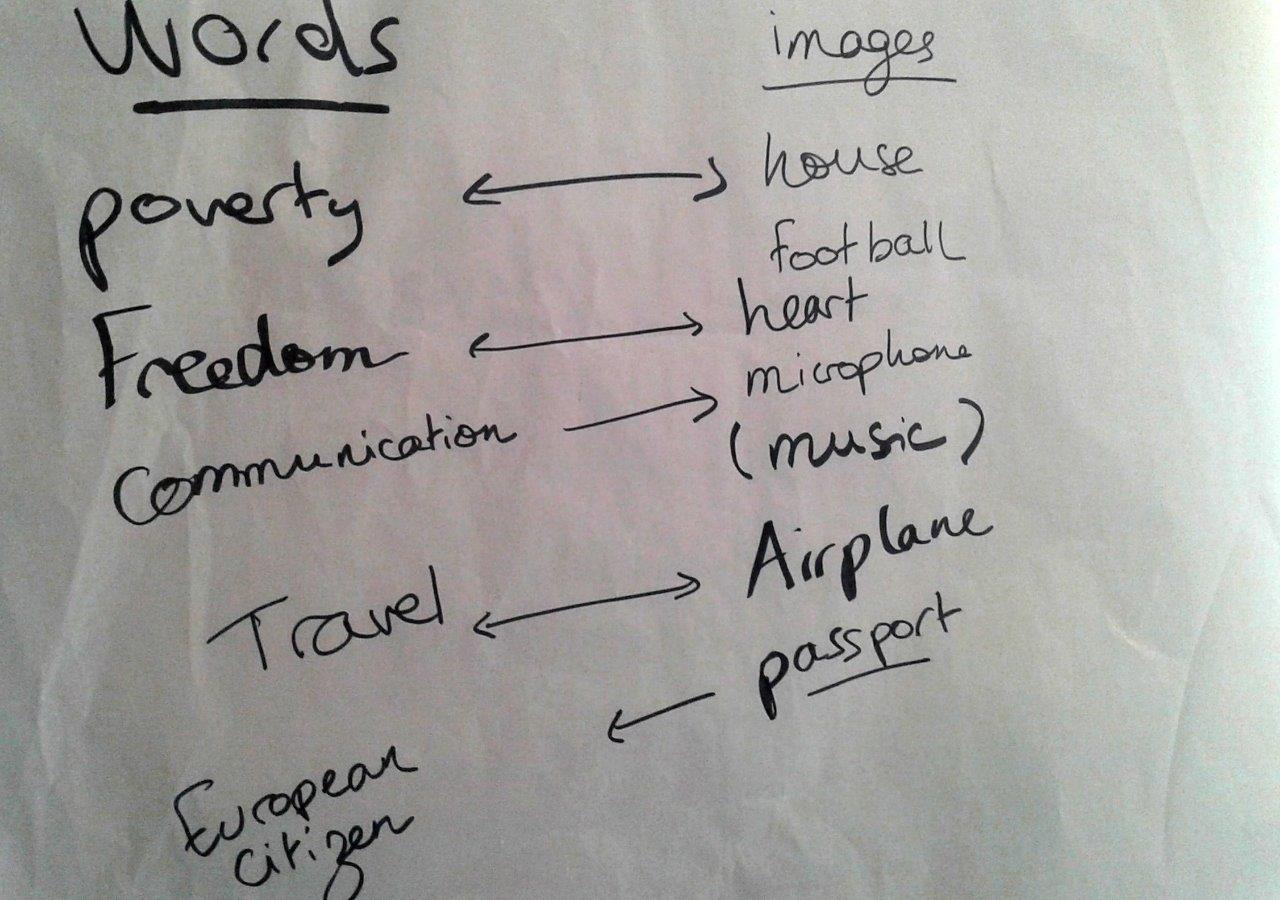 Words
images
poverty ↔ house
football
Freedom ↔ heart
Communication → microphone
(music)
Travel ↔ Airplane
← passport
European
citizen